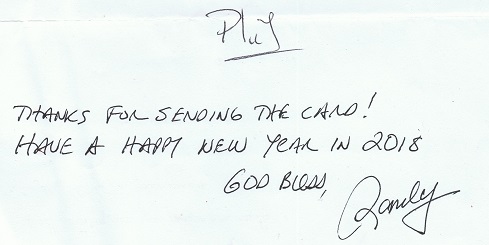 THANKS FOR SENDING THE CARD!
HAVE A HAPPY NEW YEAR IN 2018
GOD BLESS,
Randy